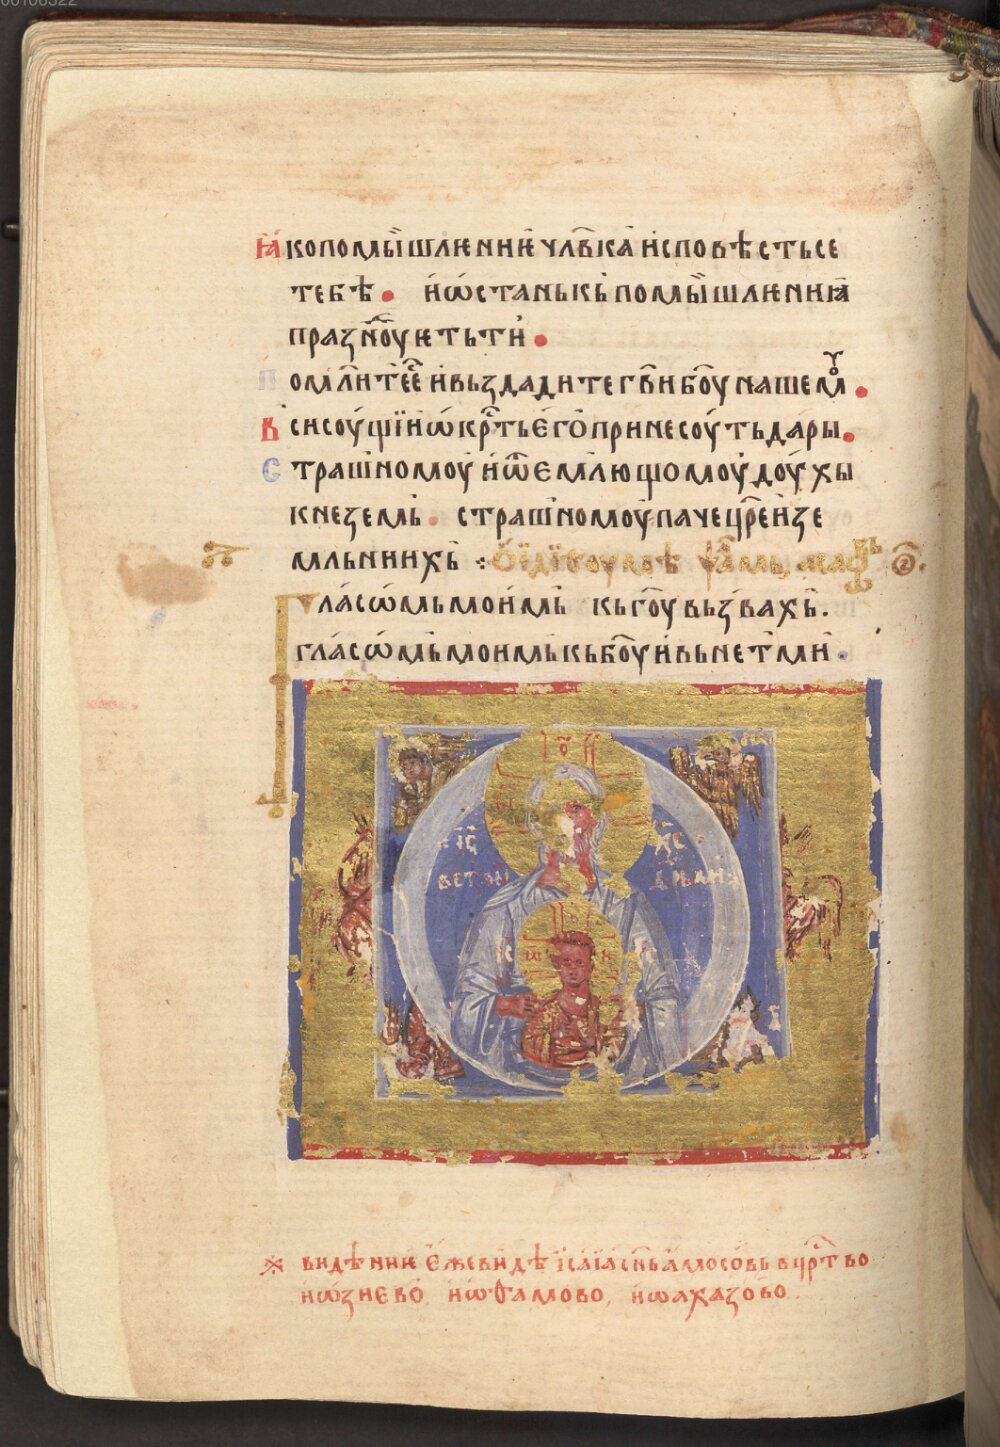 00108322
ꙗ҆копомы́шлѥниѥ члв҃ка́ и҆сповѣстьсе
тебѣ • и҆ѡ҆станькь помы́шлѥниꙗ
празⷩ҇оуѥтьти҆ •
помлⷧ҇итеⷭ҇е и҆вьздадите гв҃и бо҃у нашемꙋ •
в҆сисоу́щїи҆ ѡ҆крⷭ҇ть є҆го̀ принесоу́ть да́ры •
страшномоу̀ и҆ѿє҆млющомоу̀ доу́хы
кнеземь • страшномоу̀ паче цр҃еи҆ зе
мльниихь :
гла́сѡ́мь мои́мь кь го҃у вьзва́хь .
гла́сѡ́мь мои́мь кь бо҃у и҆ вьнетⸯми҆ •
о҃
і҃с х҃с
ветхы
дьнми
видѣниѥ є҆же ви́дѣ ї҆са́їа сн҃ь а҆мосо́вь в црⷭ҇тво
и҆ѡ҆зиєво̀, и҆ѡ҆ѳа́мово, и҆ѡ҆аха́зово.